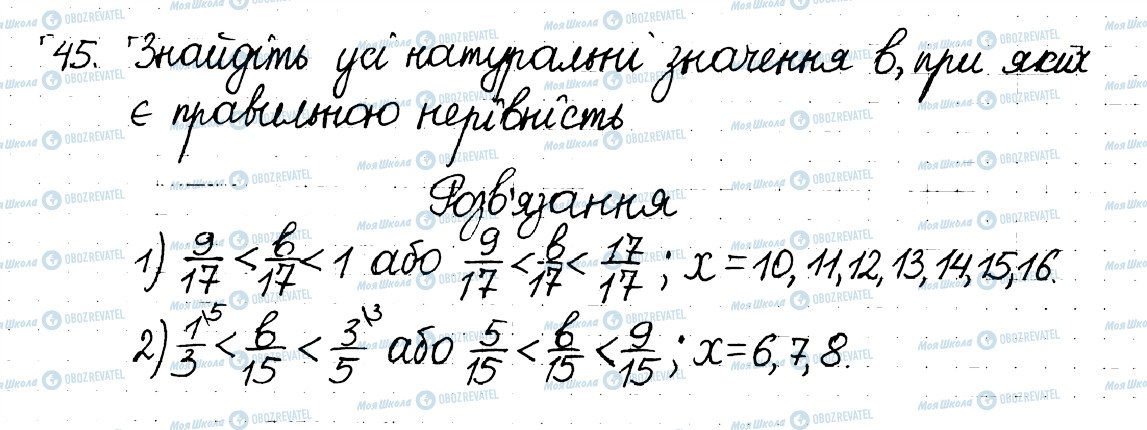 45. Знайдіть усі натуральні значення в, при яких
є правильною нерівність
Розв'язання
1) 9/17 < в/17 < 1 або 9/17 < в/17 < 17/17 ; x = 10, 11, 12, 13, 14, 15, 16.
2) 1/3 \5 < в/15 < 3/5 \3 або 5/15 < в/15 < 9/15 ; x = 6, 7, 8.